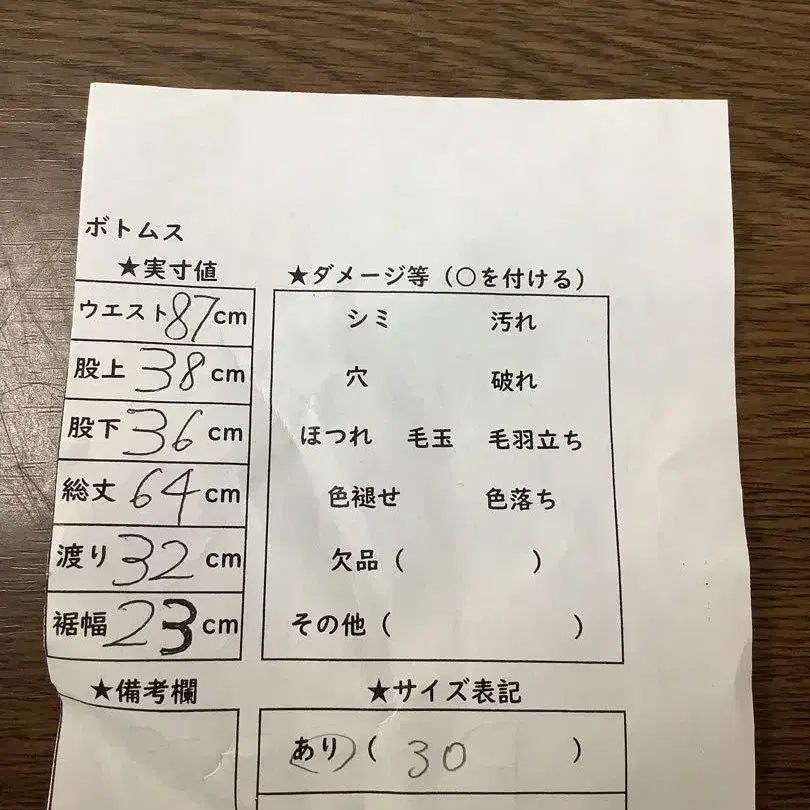 ボトムス
★実寸値
ウエスト87cm
股上 38 cm
股下 36 cm
総丈 64 cm
渡り 32 cm
裾幅 23 cm
★備考欄
★ダメージ等（○を付ける）
シミ 汚れ
穴 破れ
ほつれ 毛玉 毛羽立ち
色褪せ 色落ち
欠品（ ）
その他（ ）
★サイズ表記
あり（ 30 ）